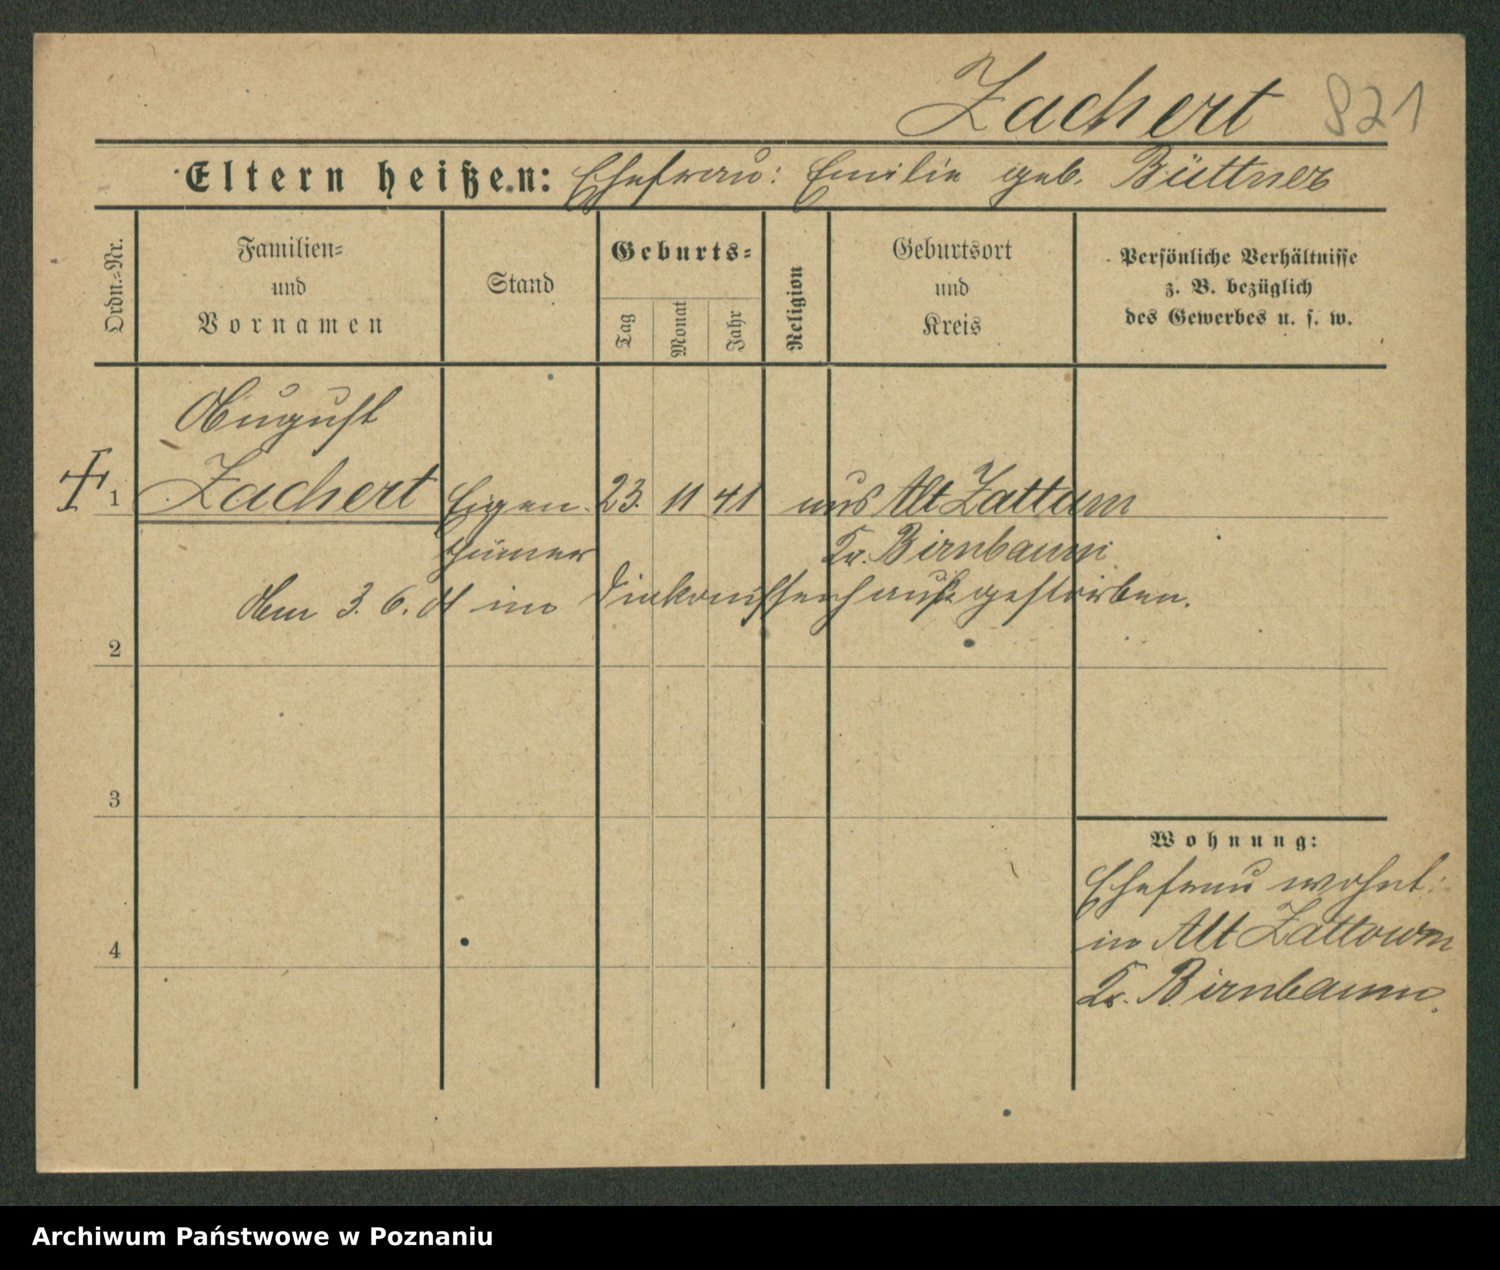 Zachert 821
Eltern heißen: Ehefrau: Emilie geb. Büttner
Ordn.-Nr.
Familien-
und
Vornamen
Stand
Geburts-
Tag
Monat
Jahr
Religion
Geburtsort
und
Kreis
Persönliche Verhältnisse
z. B. bezüglich
des Gewerbes u. s. w.
August
1 Zachert Eigen- 23. 11 41 aus Alt Zattum
thümer Kr. Birnbaum
Am 3. 6. 01 im Diakonissenhause gestorben.
2
3
4
Wohnung:
Ehefrau wohnt:
in Alt Zattowm
Kr. Birnbaum.
Archiwum Państwowe w Poznaniu